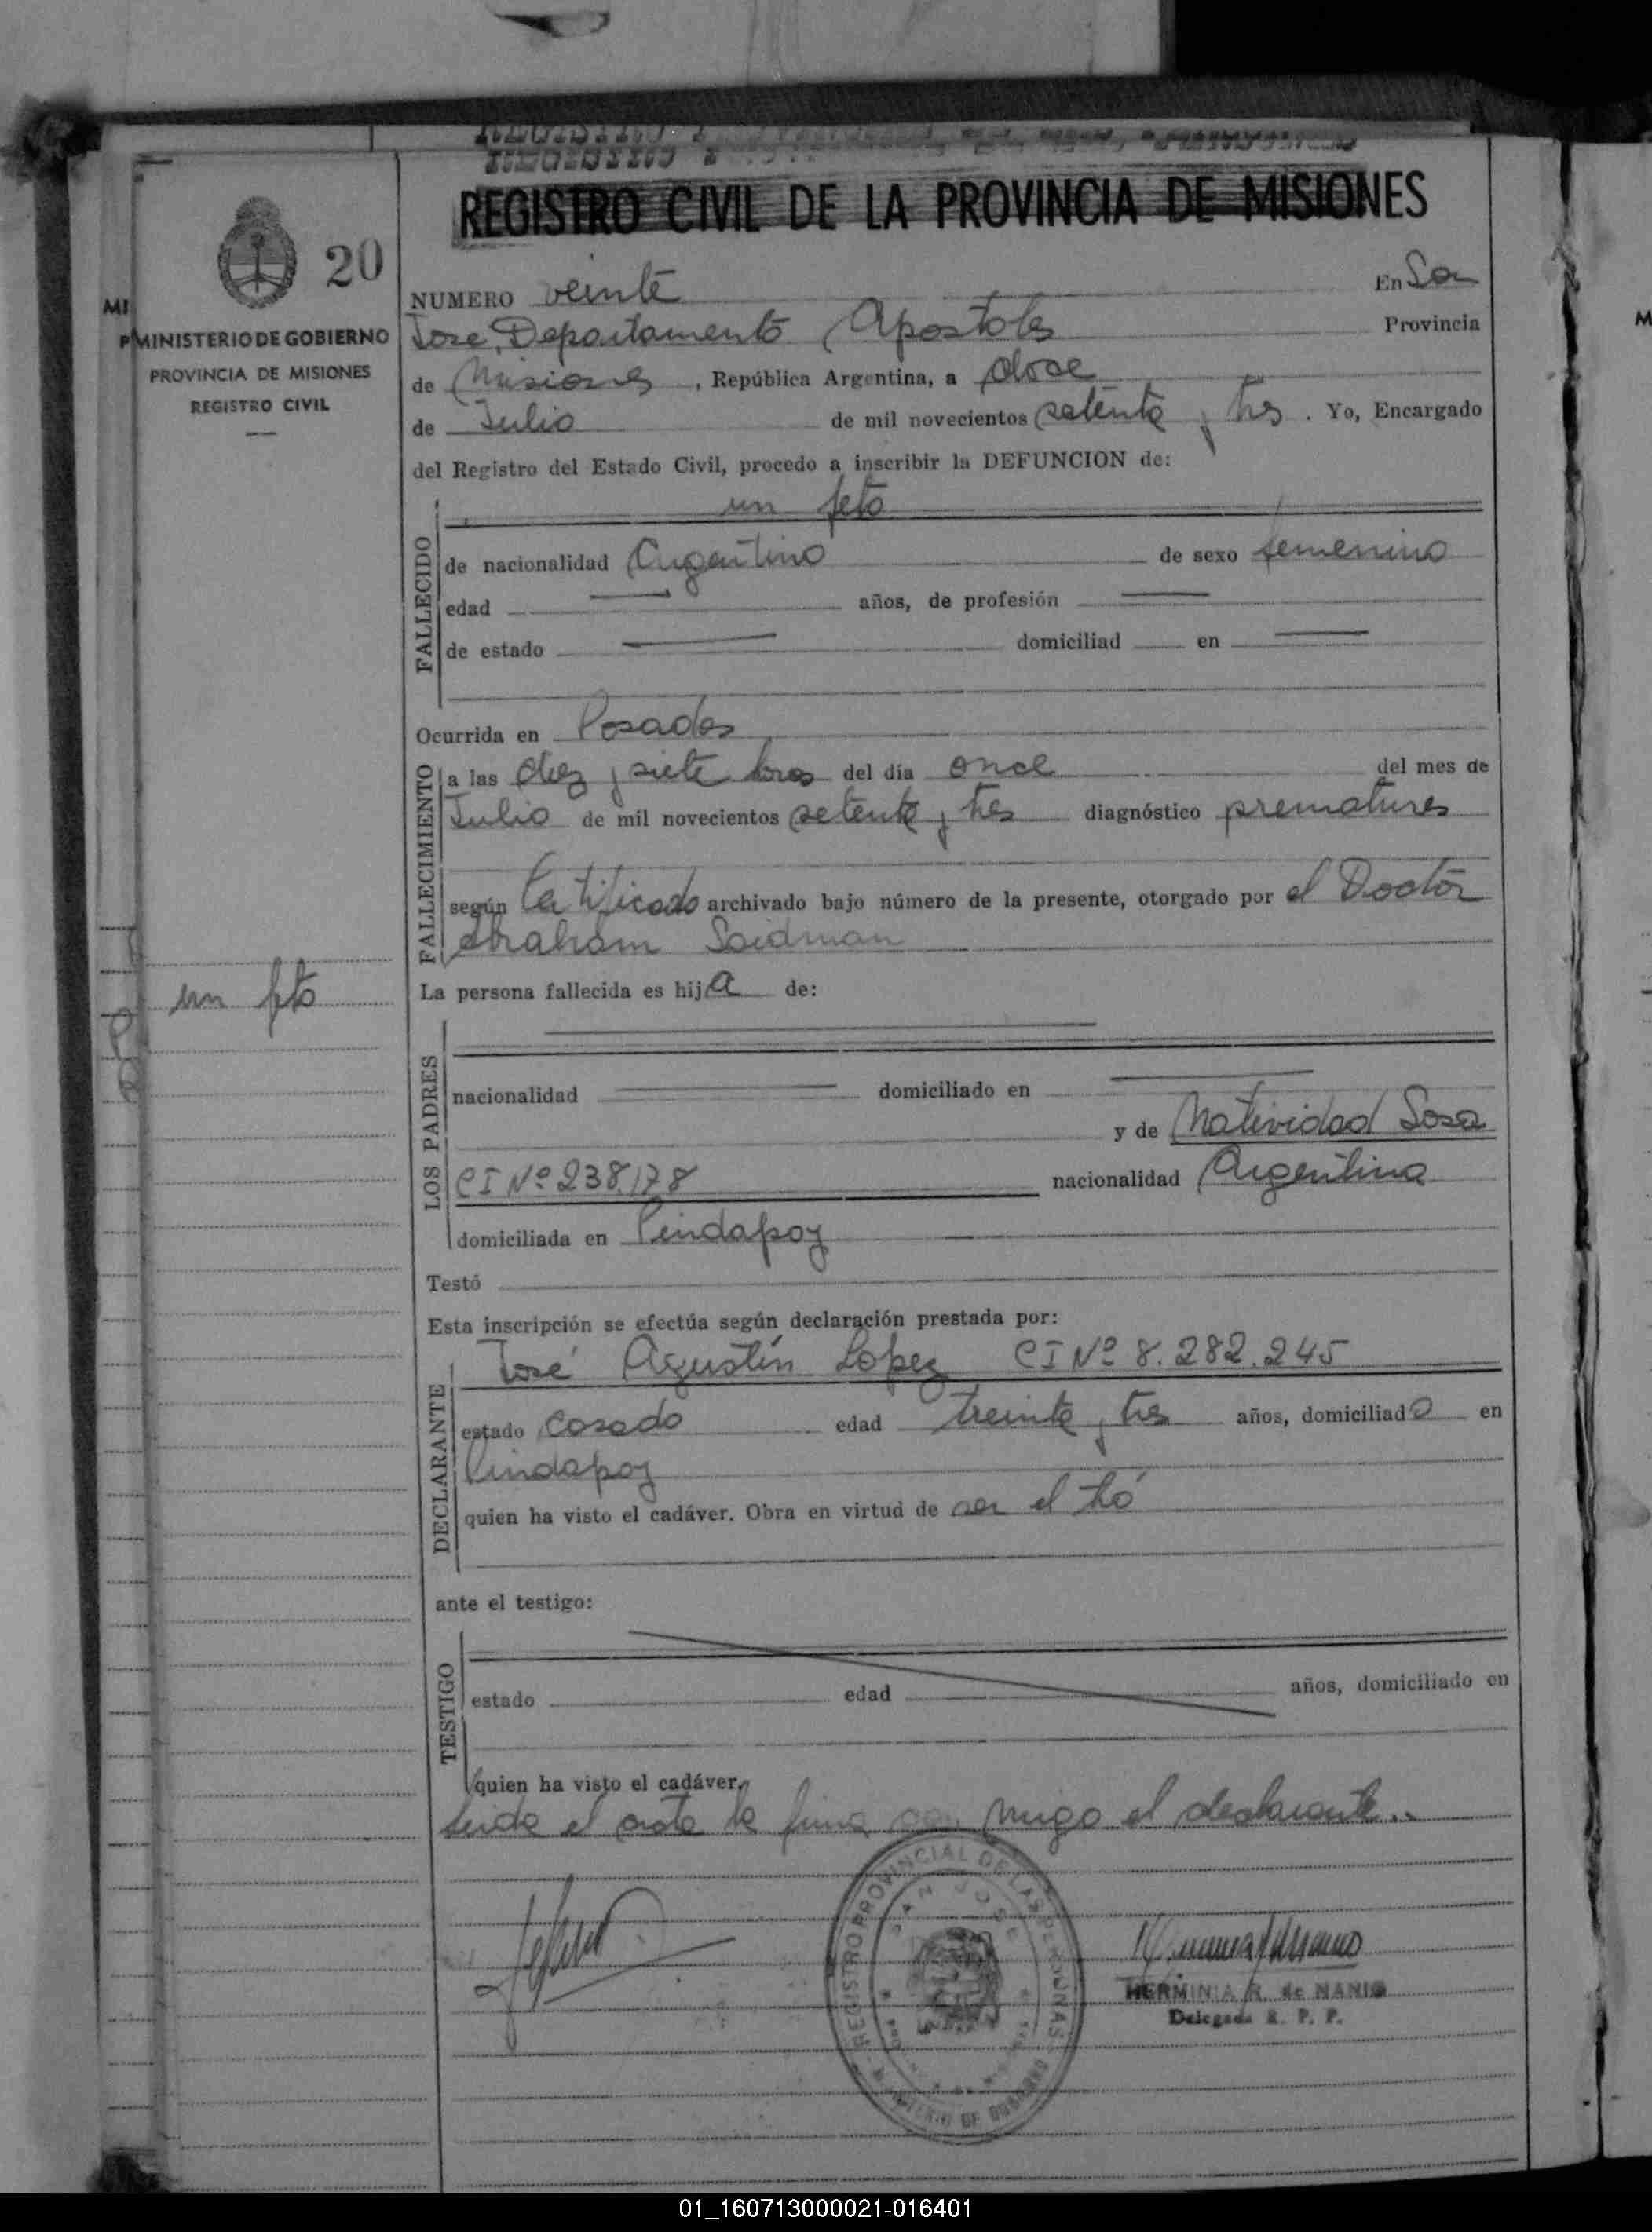 REGISTRO CIVIL DE LA PROVINCIA DE MISIONES
20
MINISTERIO DE GOBIERNO
PROVINCIA DE MISIONES
REGISTRO CIVIL
NUMERO veinte En San
Jose, Departamento Apostoles Provincia
de Misiones, República Argentina, a doce
de Julio de mil novecientos setenta y tres. Yo, Encargado
del Registro del Estado Civil, procedo a inscribir la DEFUNCION de:
un feto
FALLECIDO
de nacionalidad Argentino de sexo femenino
edad años, de profesión
de estado domiciliad en
Ocurrida en Posadas
FALLECIMIENTO
a las diez y siete horas del día once del mes de
Julio de mil novecientos setenta y tres diagnóstico prematures
según Certificado archivado bajo número de la presente, otorgado por el Doctor
Abraham Saidman
un feto
La persona fallecida es hija de:
LOS PADRES
nacionalidad domiciliado en
y de Natividad Sosa
CI Nº 238.178 nacionalidad Argentina
domiciliada en Pindapoy
Testó
Esta inscripción se efectúa según declaración prestada por:
DECLARANTE
José Agustín Lopez CI Nº 8.282.245
estado casado edad treinta y tres años, domiciliado en
Pindapoy
quien ha visto el cadáver. Obra en virtud de ser el tío
ante el testigo:
TESTIGO
estado edad años, domiciliado en
quien ha visto el cadáver.
Leida el acta la firma con migo el declarante..
REGISTRO PROVINCIAL DE LAS PERSONAS
SAN JOSE
MINISTERIO DE GOBIERNO
HERMINIA R. de NANIO
Delegada R. P. P.
01_160713000021-016401